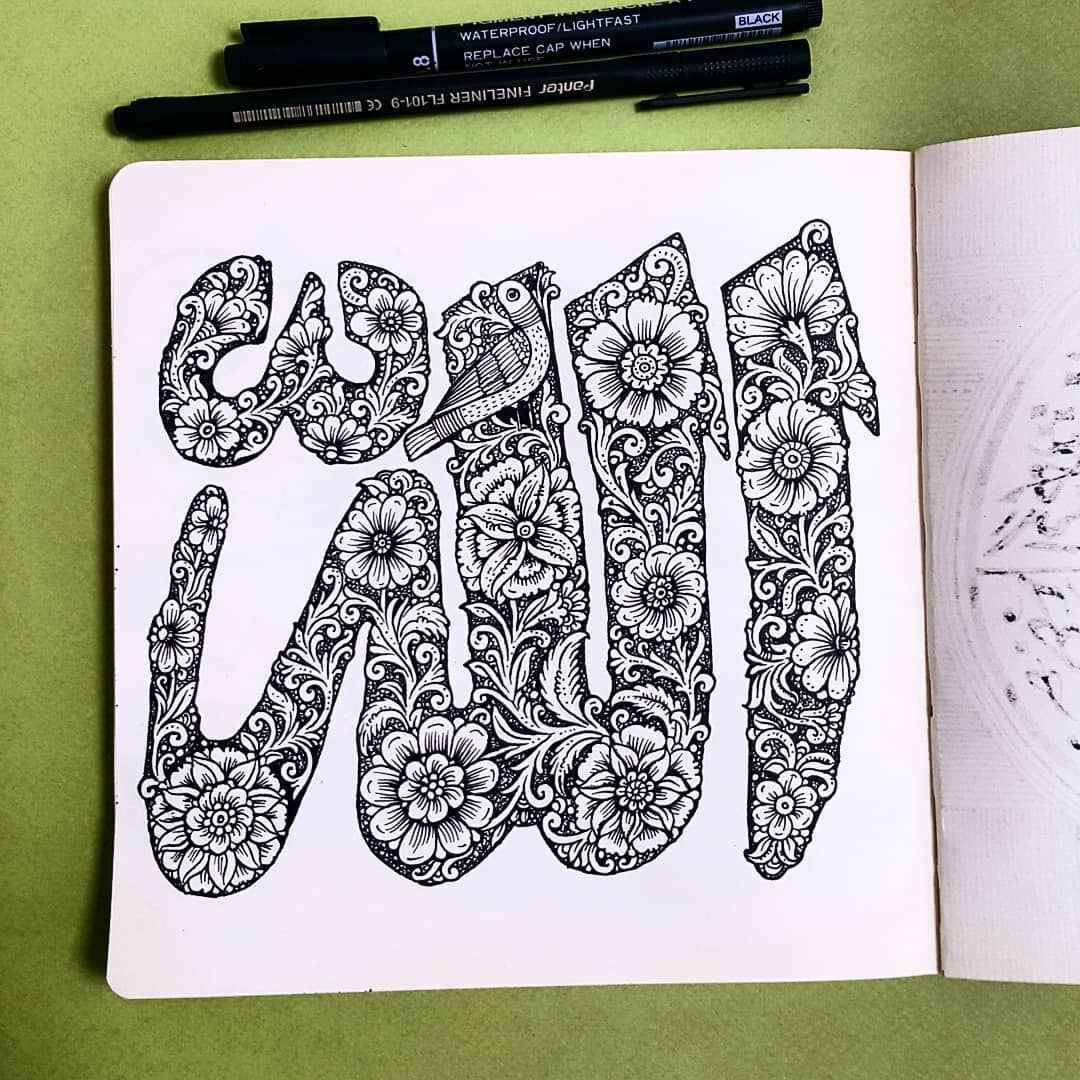 PIGMENT INK/ENCRE
WATERPROOF/LIGHTFAST
BLACK
REPLACE CAP WHEN
NOT IN USE
Panter FINELINER FL101-9 CE
اللّه